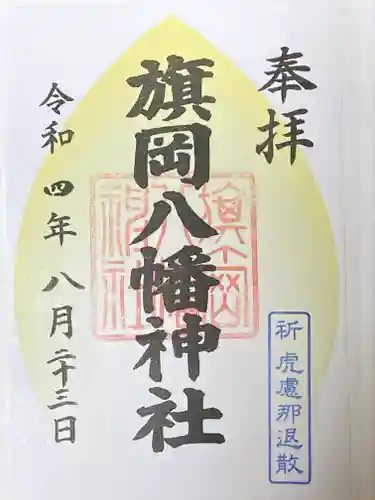 奉拝
祈虎慮那退散
旗岡八幡神社
令和四年八月二十三日